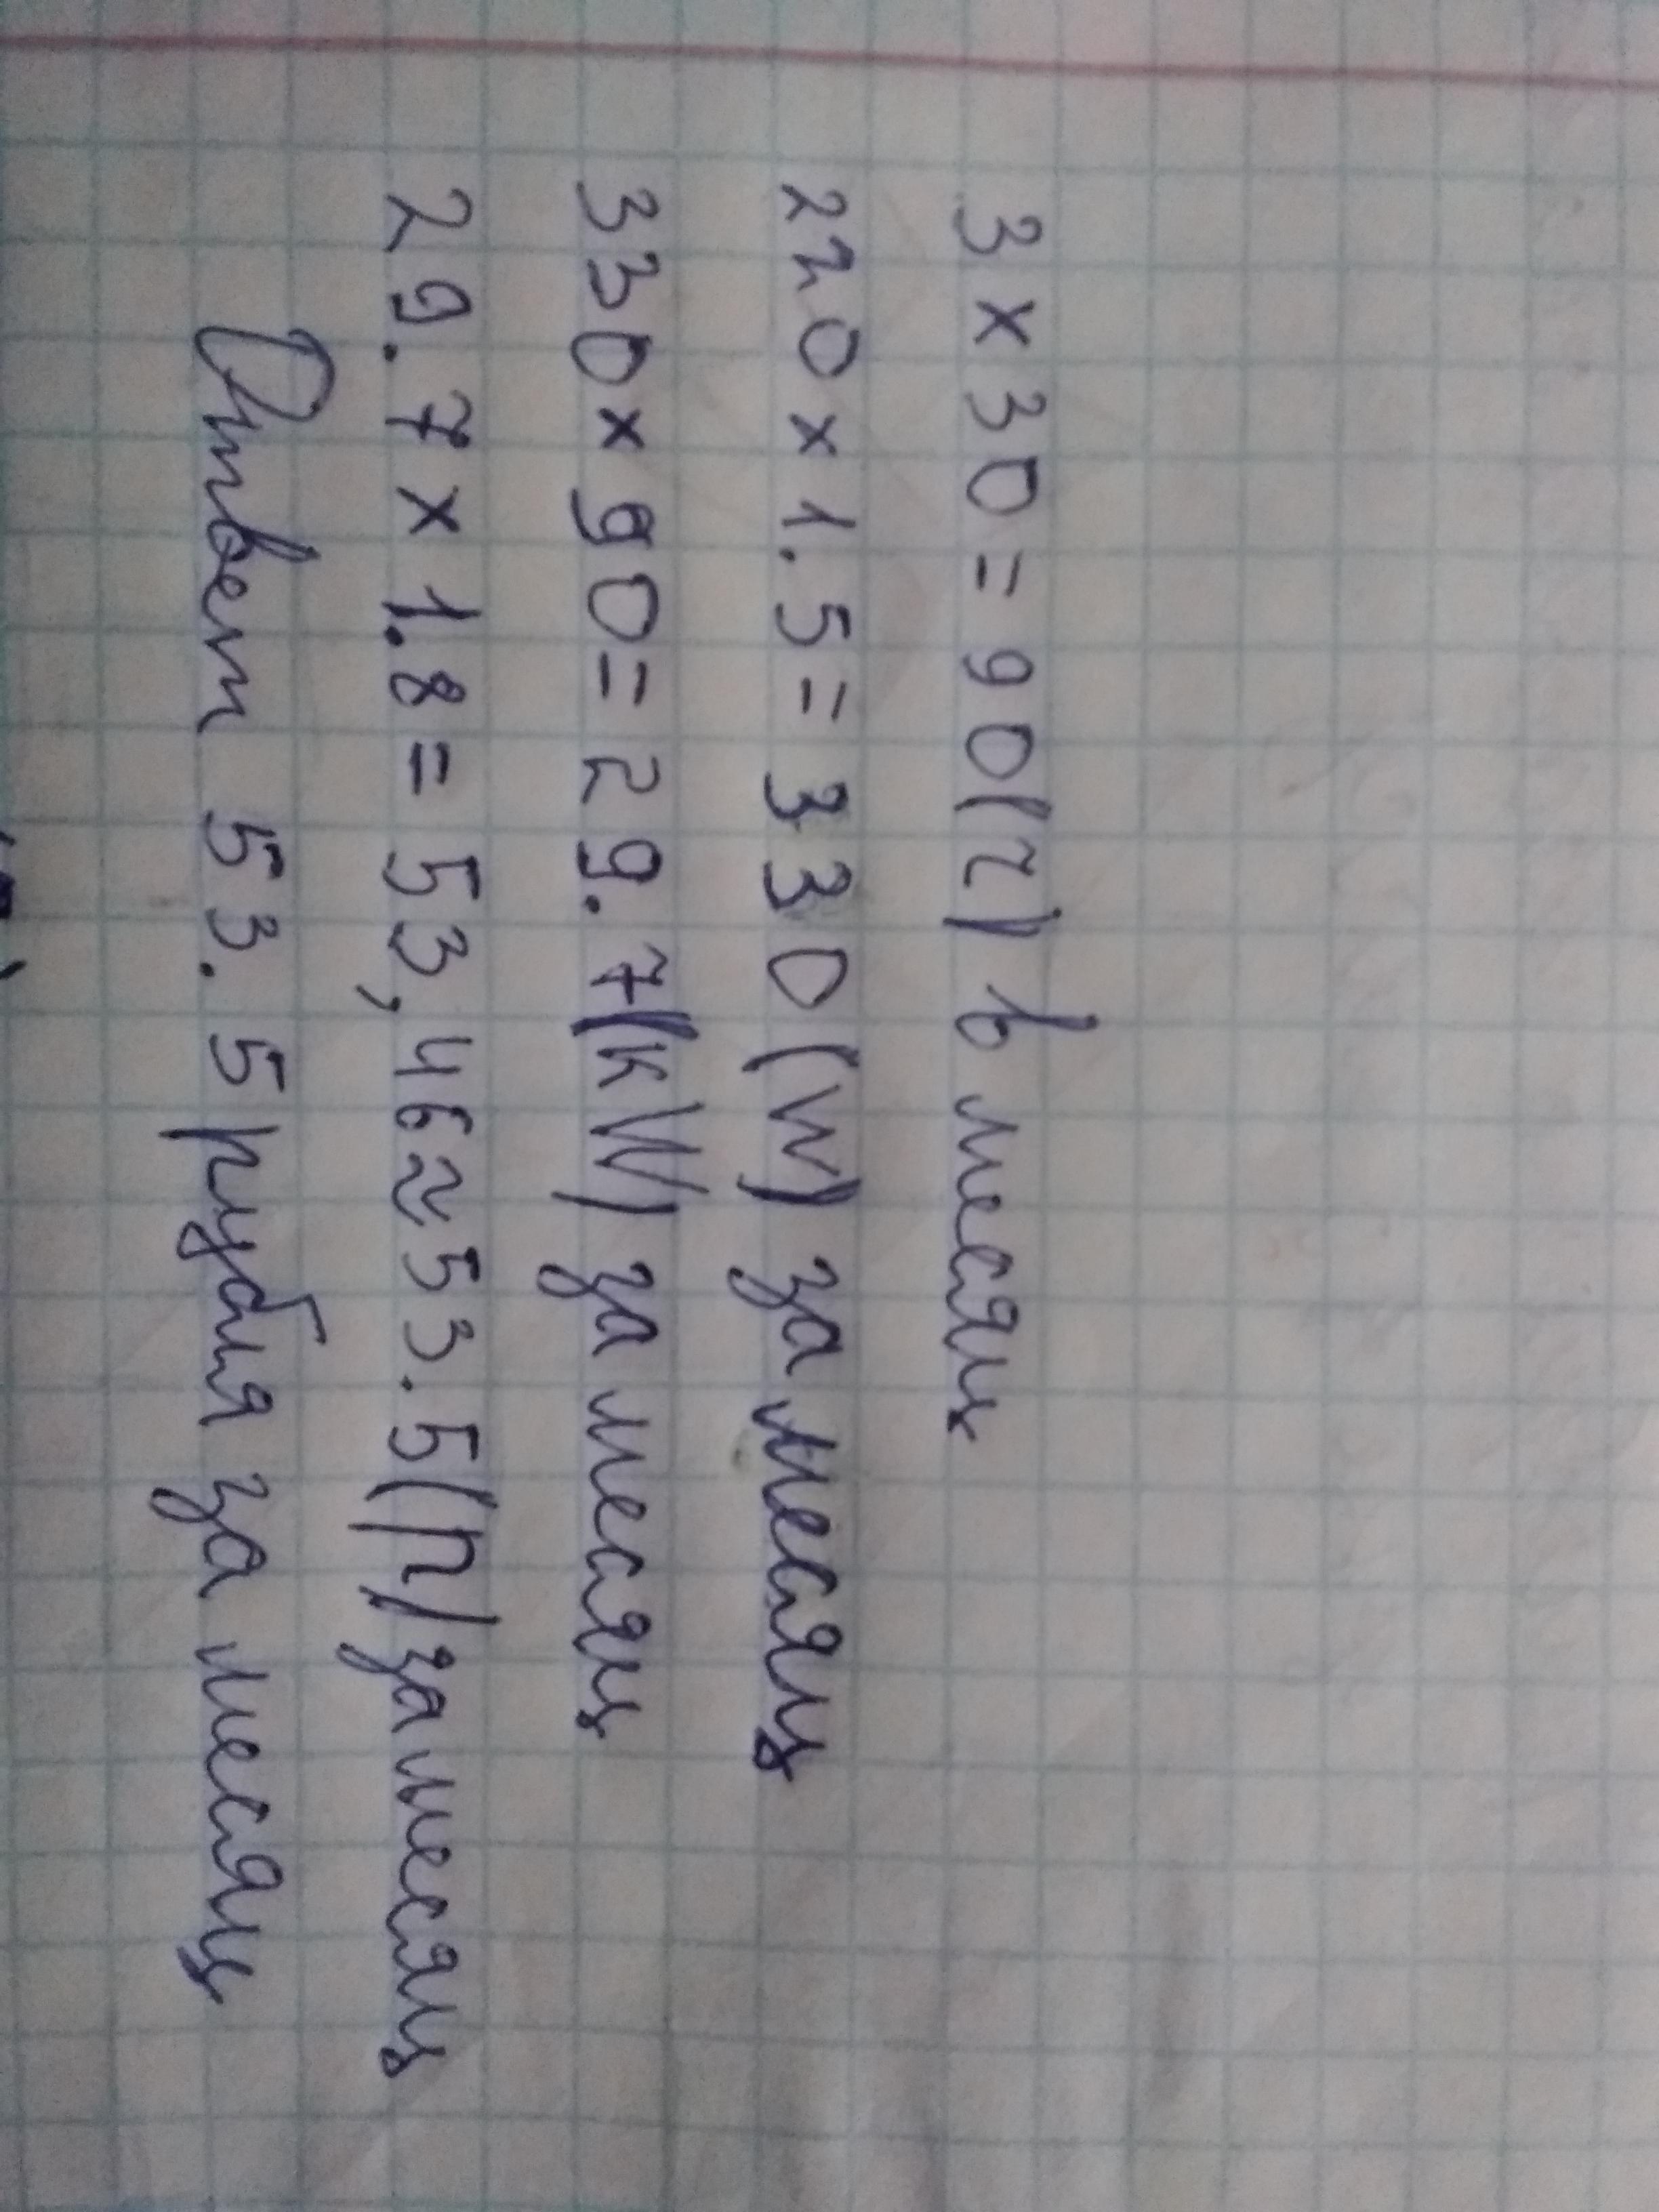 3 х 30 = 90 (ч) в месяц
220 х 1.5 = 330 (W) за месяц
330 х 90 = 29.7 (kW) за месяц
29.7 х 1.8 = 53,46 ≈ 53.5 (р) за месяц
Ответ 53.5 рубля за месяц